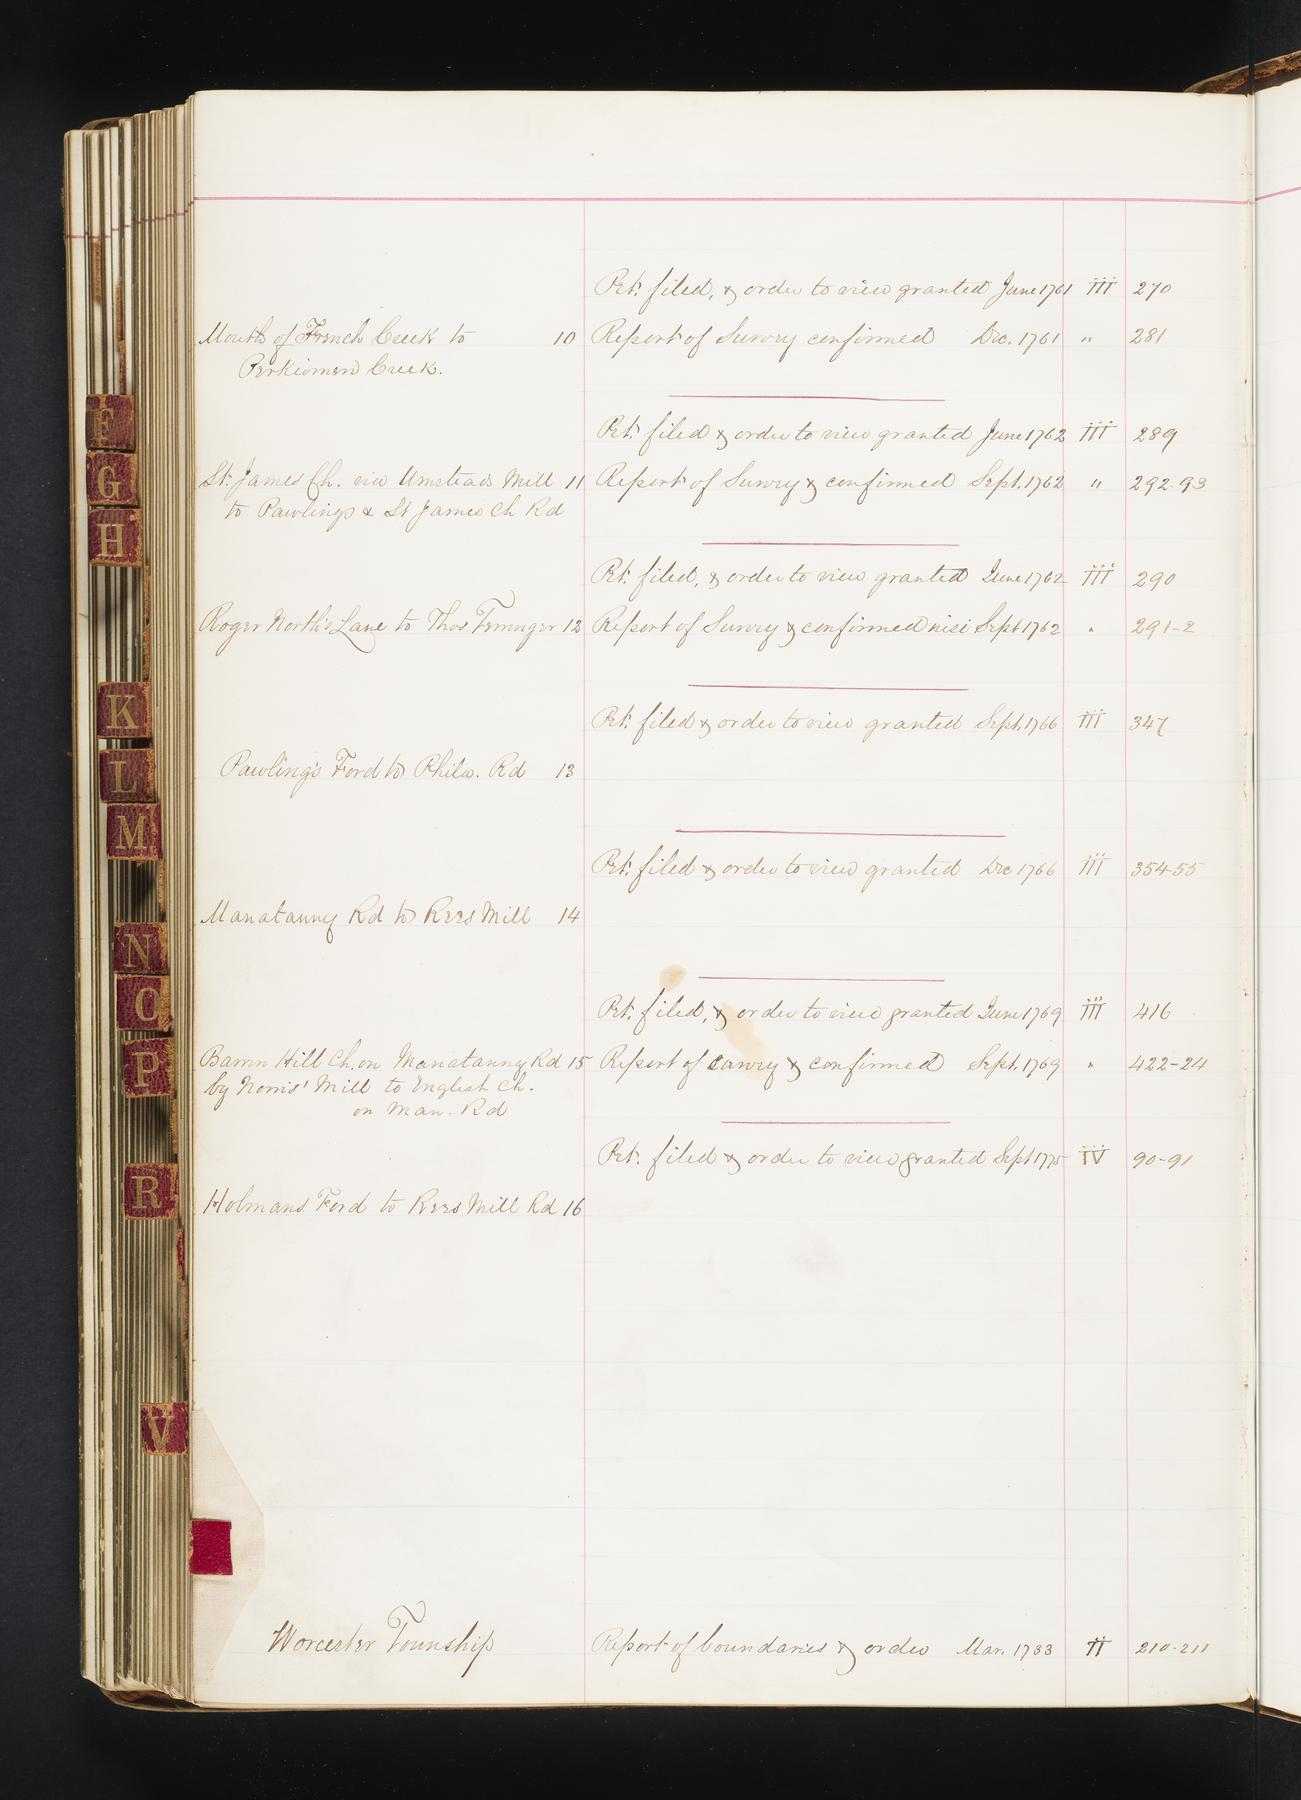 Pet. filed, & order to view granted June 1761 III 270
Mouth of French Creek to 10 Report of Survey confirmed Dec. 1761 " 281
Perkiomen Creek.
Pet. filed & order to view granted June 1762 III 289
St. James Ch. via Umsteads Mill 11 Report of Survey & confirmed Sept. 1762 " 292-93
to Pawlings & St James Ch Rd
Pet. filed, & order to view granted June 1762 III 290
Roger North's Lane to Thos 12 Report of Survey & confirmed nisi Sept 1762 " 291-2
Pet. filed & order to view granted Sept. 1766 III 347
Pawling's Ford to Phila. Rd 13
Pet. filed & order to view granted Dec 1766 III 354-55
Manatanny Rd to Rees Mill 14
Pet. filed, & order to view granted June 1769 III 416
Barren Hill Ch. on Manatanny Rd 15 Report of survey & confirmed Sept. 1769 " 422-24
by Norris' Mill to English Ch.
on Man. Rd
Pet. filed & order to view granted Sept 1775 IV 90-91
Holmans Ford to Rees Mill Rd 16
Worcester Township Report of boundaries & order Mar. 1733 II 210-211
F
G
H
K
L
M
N
O
P
R
V